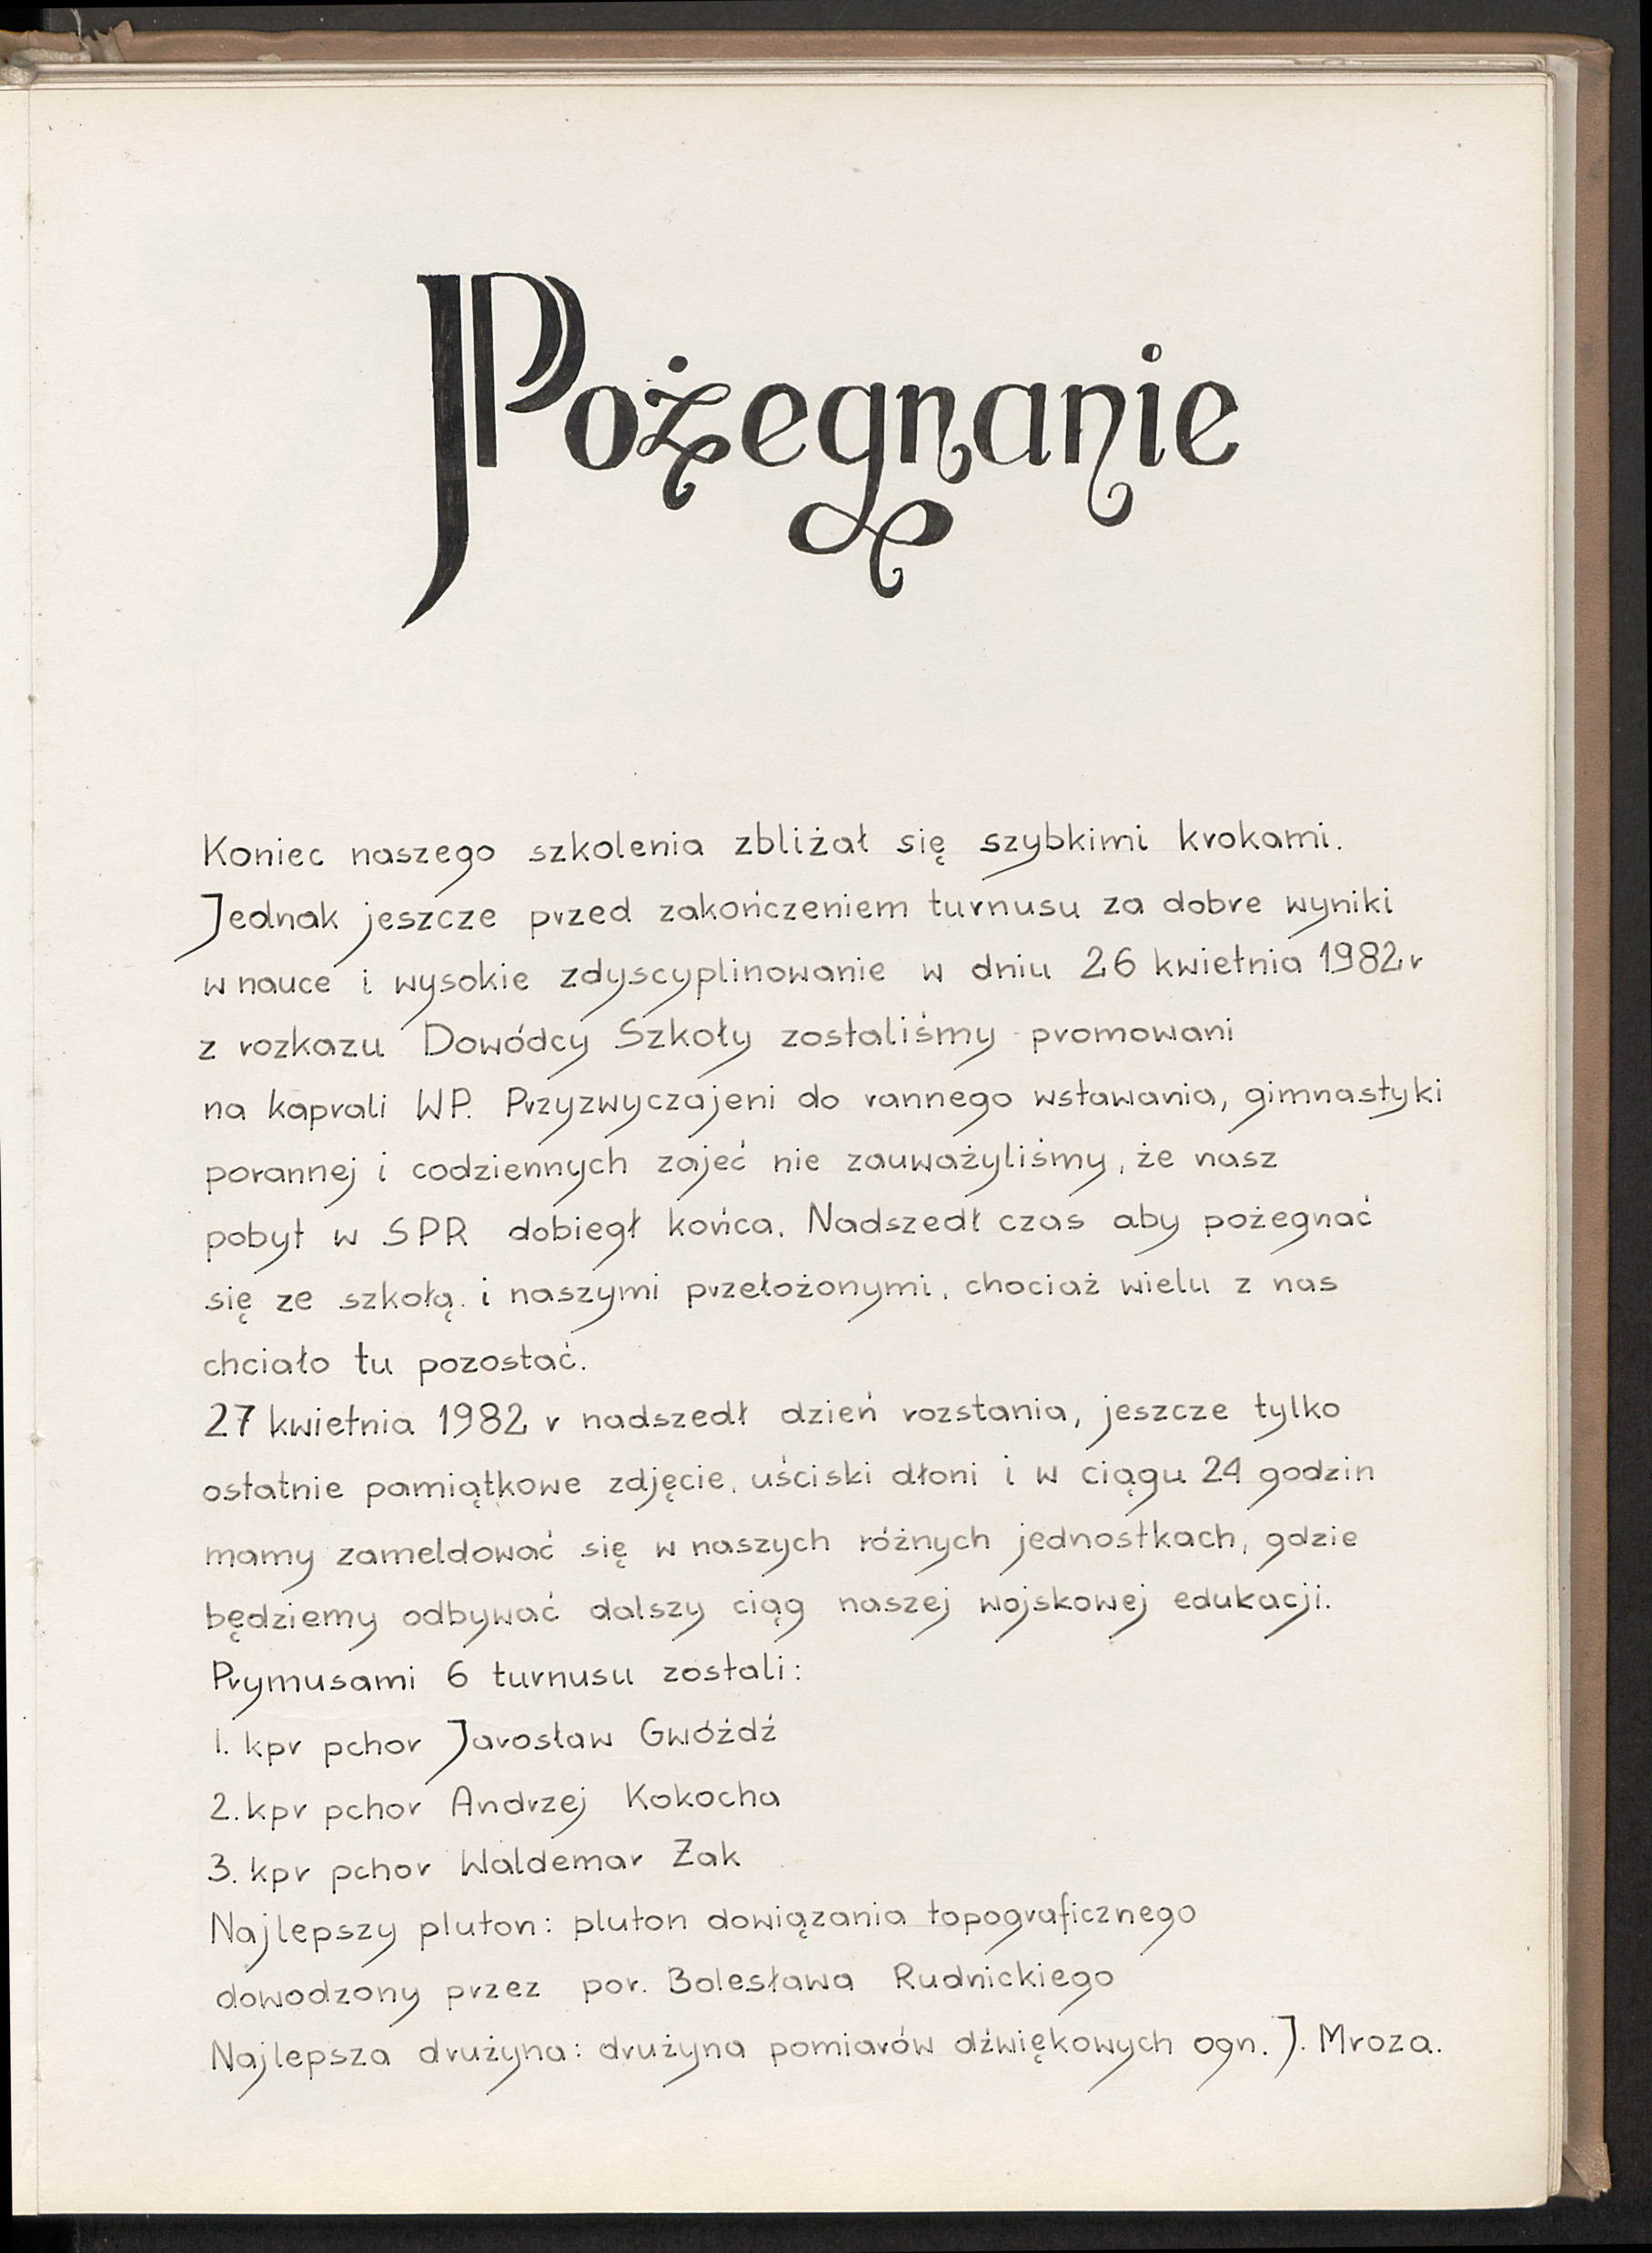 Pożegnanie
Koniec naszego szkolenia zbliżał się szybkimi krokami.
Jednak jeszcze przed zakończeniem turnusu za dobre wyniki
w nauce i wysokie zdyscyplinowanie w dniu 26 kwietnia 1982 r
z rozkazu Dowódcy Szkoły zostaliśmy promowani
na kaprali WP. Przyzwyczajeni do rannego wstawania, gimnastyki
porannej i codziennych zajeć nie zauważyliśmy, że nasz
pobyt w SPR dobiegł końca. Nadszedł czas aby pożegnać
się ze szkołą i naszymi przełożonymi, chociaż wielu z nas
chciało tu pozostać.
27 kwietnia 1982 r nadszedł dzień rozstania, jeszcze tylko
ostatnie pamiątkowe zdjęcie, uściski dłoni i w ciągu 24 godzin
mamy zameldować się w naszych różnych jednostkach, gdzie
będziemy odbywać dalszy ciąg naszej wojskowej edukacji.
Prymusami 6 turnusu zostali:
1. kpr pchor Jarosław Gwóźdź
2. kpr pchor Andrzej Kokocha
3. kpr pchor Waldemar Żak
Najlepszy pluton: pluton dowiązania topograficznego
dowodzony przez por. Bolesława Rudnickiego
Najlepsza drużyna: drużyna pomiarów dźwiękowych ogn. J. Mroza.